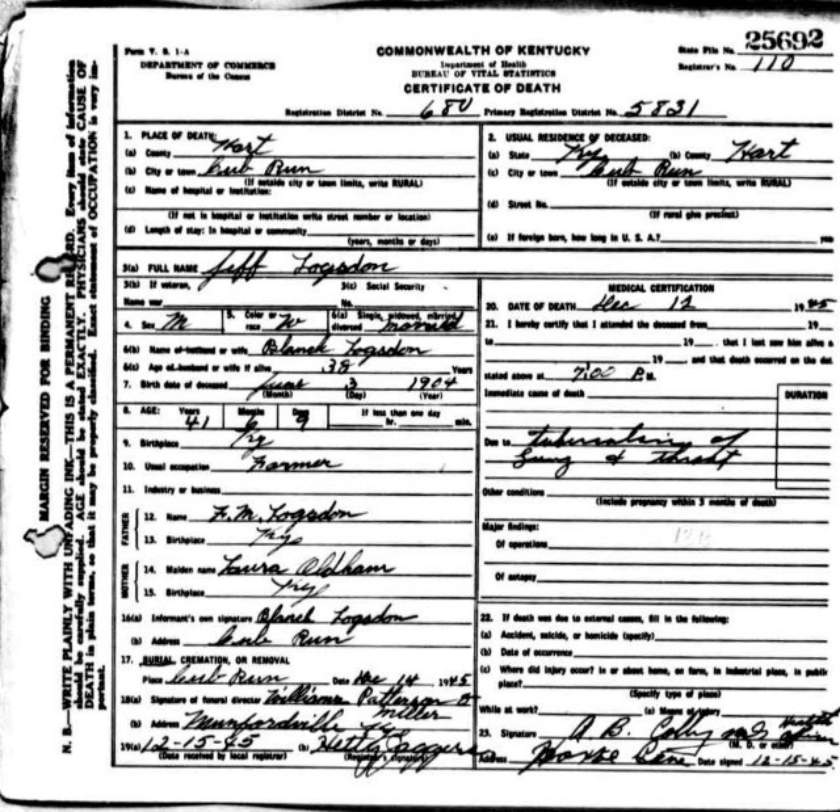 Form V. S. 1-A
DEPARTMENT OF COMMERCE
Bureau of the Census
COMMONWEALTH OF KENTUCKY
Department of Health
BUREAU OF VITAL STATISTICS
CERTIFICATE OF DEATH
State File No. 25692
Registrar's No. 110
Registration District No. 680 Primary Registration District No. 5831
MARGIN RESERVED FOR BINDING
N. B.—WRITE PLAINLY WITH UNFADING INK—THIS IS A PERMANENT RECORD. Every item of information
should be carefully supplied. AGE should be stated EXACTLY. PHYSICIANS should state CAUSE OF
DEATH in plain terms, so that it may be properly classified. Exact statement of OCCUPATION is very im-
portant.
1. PLACE OF DEATH:
(a) County Hart
(b) City or town Cub Run
(If outside city or town limits, write RURAL)
(c) Name of hospital or institution:
(If not in hospital or institution write street number or location)
(d) Length of stay: In hospital or community
(years, months or days)
2. USUAL RESIDENCE OF DECEASED:
(a) State Ky (b) County Hart
(c) City or town Cub Run
(If outside city or town limits, write RURAL)
(d) Street No.
(If rural give precinct)
(e) If foreign born, how long in U. S. A.? yes
3(a) FULL NAME Jeff Logsdon
3(b) If veteran,
Name war
3(c) Social Security
No.
4. Sex M
5. Color or
race W
6(a) Single, widowed, married,
divorced Married
6(b) Name of husband or wife Blanch Logsdon
6(c) Age of husband or wife if alive 38 Years
7. Birth date of deceased June 3 1904
(Month) (Day) (Year)
8. AGE: Years Months Days If less than one day
41 6 9 hr. min.
9. Birthplace Ky
10. Usual occupation Farmer
11. Industry or business
FATHER
12. Name F. M. Logsdon
13. Birthplace Ky
MOTHER
14. Maiden name Laura Oldham
15. Birthplace Ky
16(a) Informant's own signature Blanch Logsdon
(b) Address Cub Run
17. BURIAL, CREMATION, OR REMOVAL
Place Cub Run Date Dec 14 1945
18(a) Signature of funeral director Williams Patterson &
Miller
(b) Address Munfordville Ky
19(a) 12-15-45 (b) Hetty
(Date received by local registrar) (Registrar's signature)
MEDICAL CERTIFICATION
20. DATE OF DEATH Dec 12 1945
21. I hereby certify that I attended the deceased from 19
to 19 , that I last saw him alive o
19 , and that death occurred on the dat
stated above at 7:00 P.M.
Immediate cause of death
DURATION
Due to tuberculosis of
Lung & throat
Other conditions
(Include pregnancy within 3 months of death)
Major findings:
Of operations
Of autopsy
22. If death was due to external causes, fill in the following:
(a) Accident, suicide, or homicide (specify)
(b) Date of occurrence
(c) Where did injury occur? In or about home, on farm, in industrial place, in public
place?
(Specify type of place)
While at work? (e) Means of injury
23. Signature A. B. Colby
(M. D. or other)
Address Date signed 12-15-45